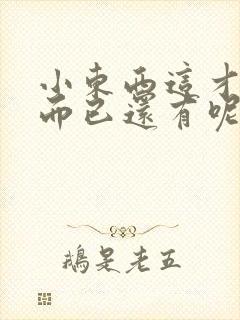 小東西這才
而已還有呢
鵝是老五